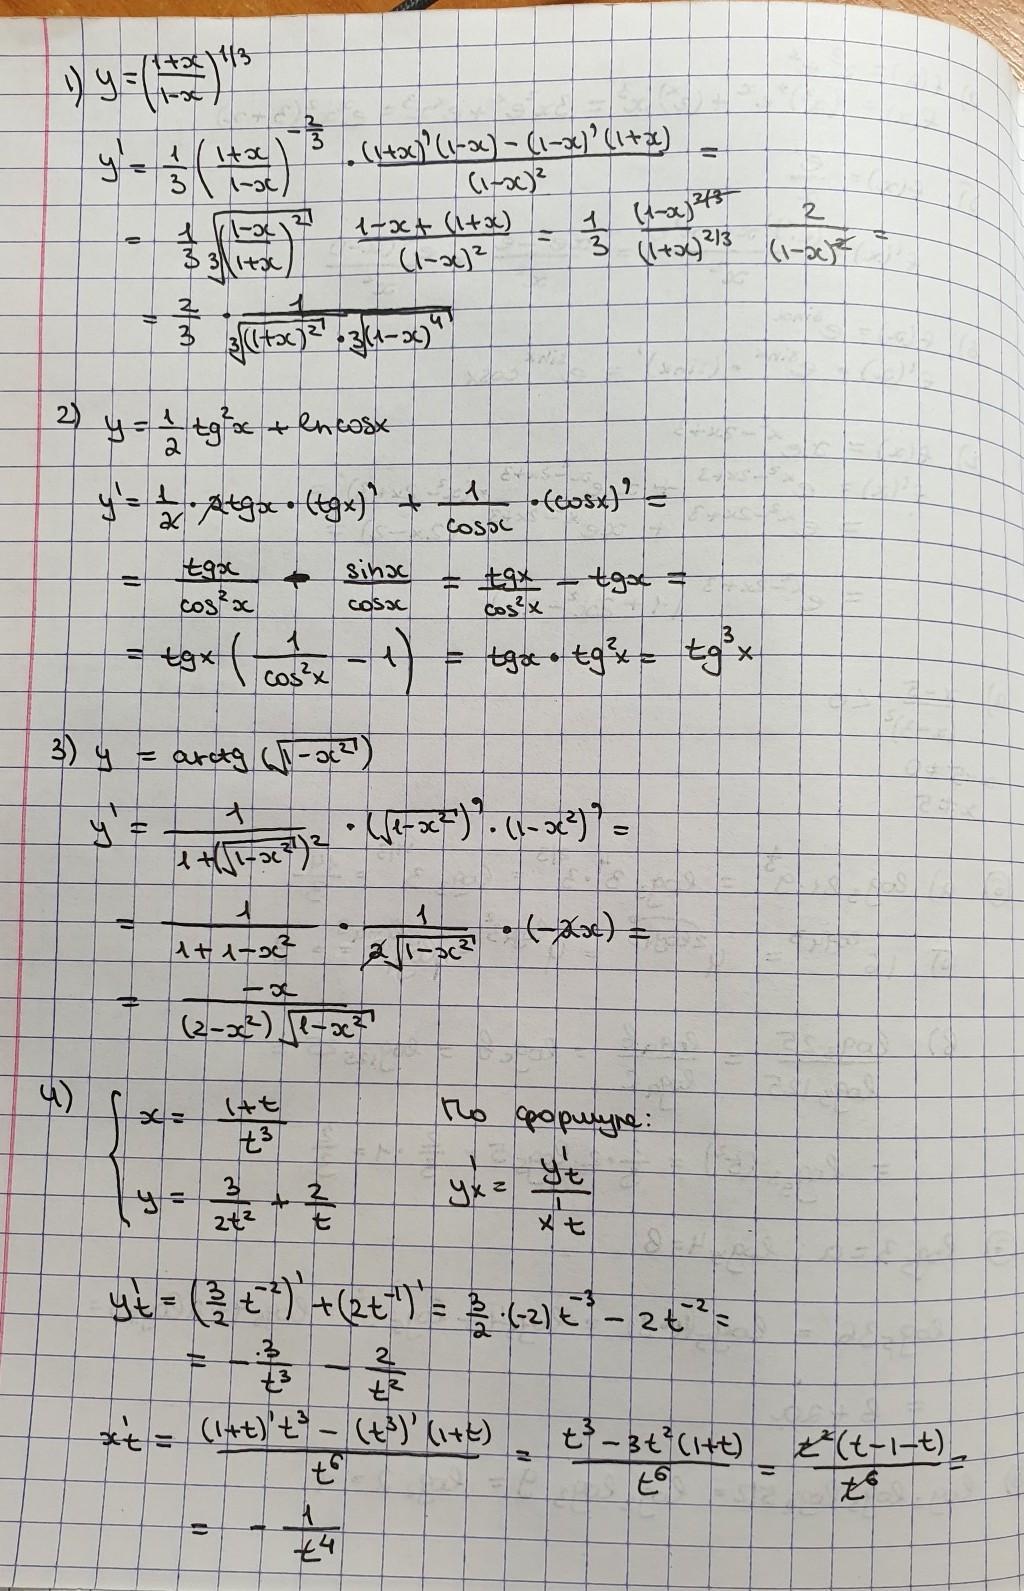 1) y = ((1+x)/(1-x))^1/3
y' = 1/3 ((1+x)/(1-x))^-2/3 · ((1+x)'(1-x) - (1-x)'(1+x))/(1-x)² =
= 1/3 ∛((1-x)/(1+x))² (1-x+(1+x))/(1-x)² = 1/3 (1-x)^2/3/(1+x)^2/3 2/(1-x)² =
= 2/3 · 1/(∛(1+x)² · ∛(1-x)⁴)
2) y = 1/2 tg²x + ln cosx
y' = 1/2 · 2tgx · (tgx)' + 1/cosx · (cosx)' =
= tgx/cos²x - sinx/cosx = tgx/cos²x - tgx =
= tgx (1/cos²x - 1) = tgx · tg²x = tg³x
3) y = arctg (√(1-x²))
y' = 1/(1+(√(1-x²))²) · (√(1-x²))' · (1-x²)' =
= 1/(1+1-x²) · 1/(2√(1-x²)) · (-2x) =
= -x/((2-x²)√(1-x²))
4) { x = (1+t)/t³
y = 3/(2t²) + 2/t
По формуле:
y'x = y't/x't
y't = (3/2 t⁻²)' + (2t⁻¹)' = 3/2 · (-2) t⁻³ - 2t⁻² =
= - 3/t³ - 2/t²
x't = ((1+t)'t³ - (t³)'(1+t))/t⁶ = (t³ - 3t²(1+t))/t⁶ = t²(t-1-t)/t⁶ =
= - 1/t⁴